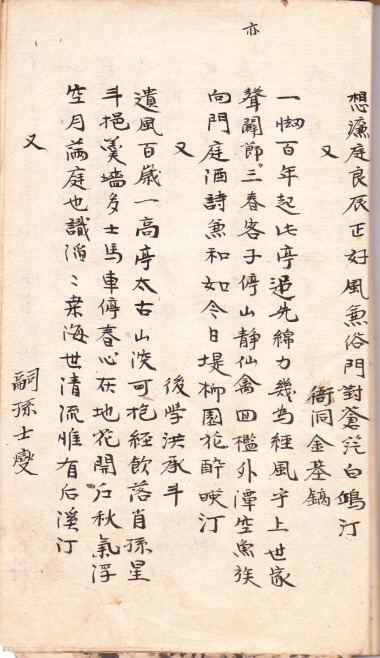 亦
想濂庭良辰正好風兼俗門對蒼茫白鷗汀
又
衙洞金基鎬
一㤼百年起此亭追先綿力幾為經風宇上世家
聲闡節三春客子停山静仙禽回檻外潭空魚族
向門庭酒詩兼和如今日堤柳園花醉暎汀
又
後學洪承斗
遺風百歲一高亭太古山深可抱經飲落肖孫星
斗挹羹墻多士馬車停春心在地花開后秋氣浮
空月滿庭也識滔〻桑海世清流惟有石溪汀
又
嗣孫士燮